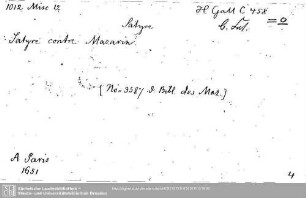 1012 Misc 12
H Gall C 458
=0
Satyre
Satyre contre Mazarin
[No 3587 d. Bibl. des Maz.]
A Paris
1651
4
Sächsische Landesbibliothek -
Staats- und Universitätsbibliothek Dresden